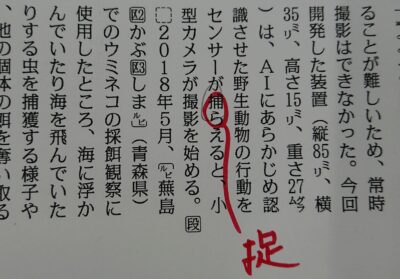 ることが難しいため、常時
撮影はできなかった。今回
開発した装置（縦85㍉、横
35㍉、高さ15㍉、重さ27㌘
）は、AIにあらかじめ認
識させた野生動物の行動を
センサーが捕らえると、小
型カメラが撮影を始める。段
2018年5月、ルビ蕪島
K2かぶK3しまルビ（青森県）
でのウミネコの採餌観察に
使用したところ、海に浮か
んでいたり海を飛んでいた
りする虫を捕獲する様子や
、他の個体の餌を奪い取る
捉